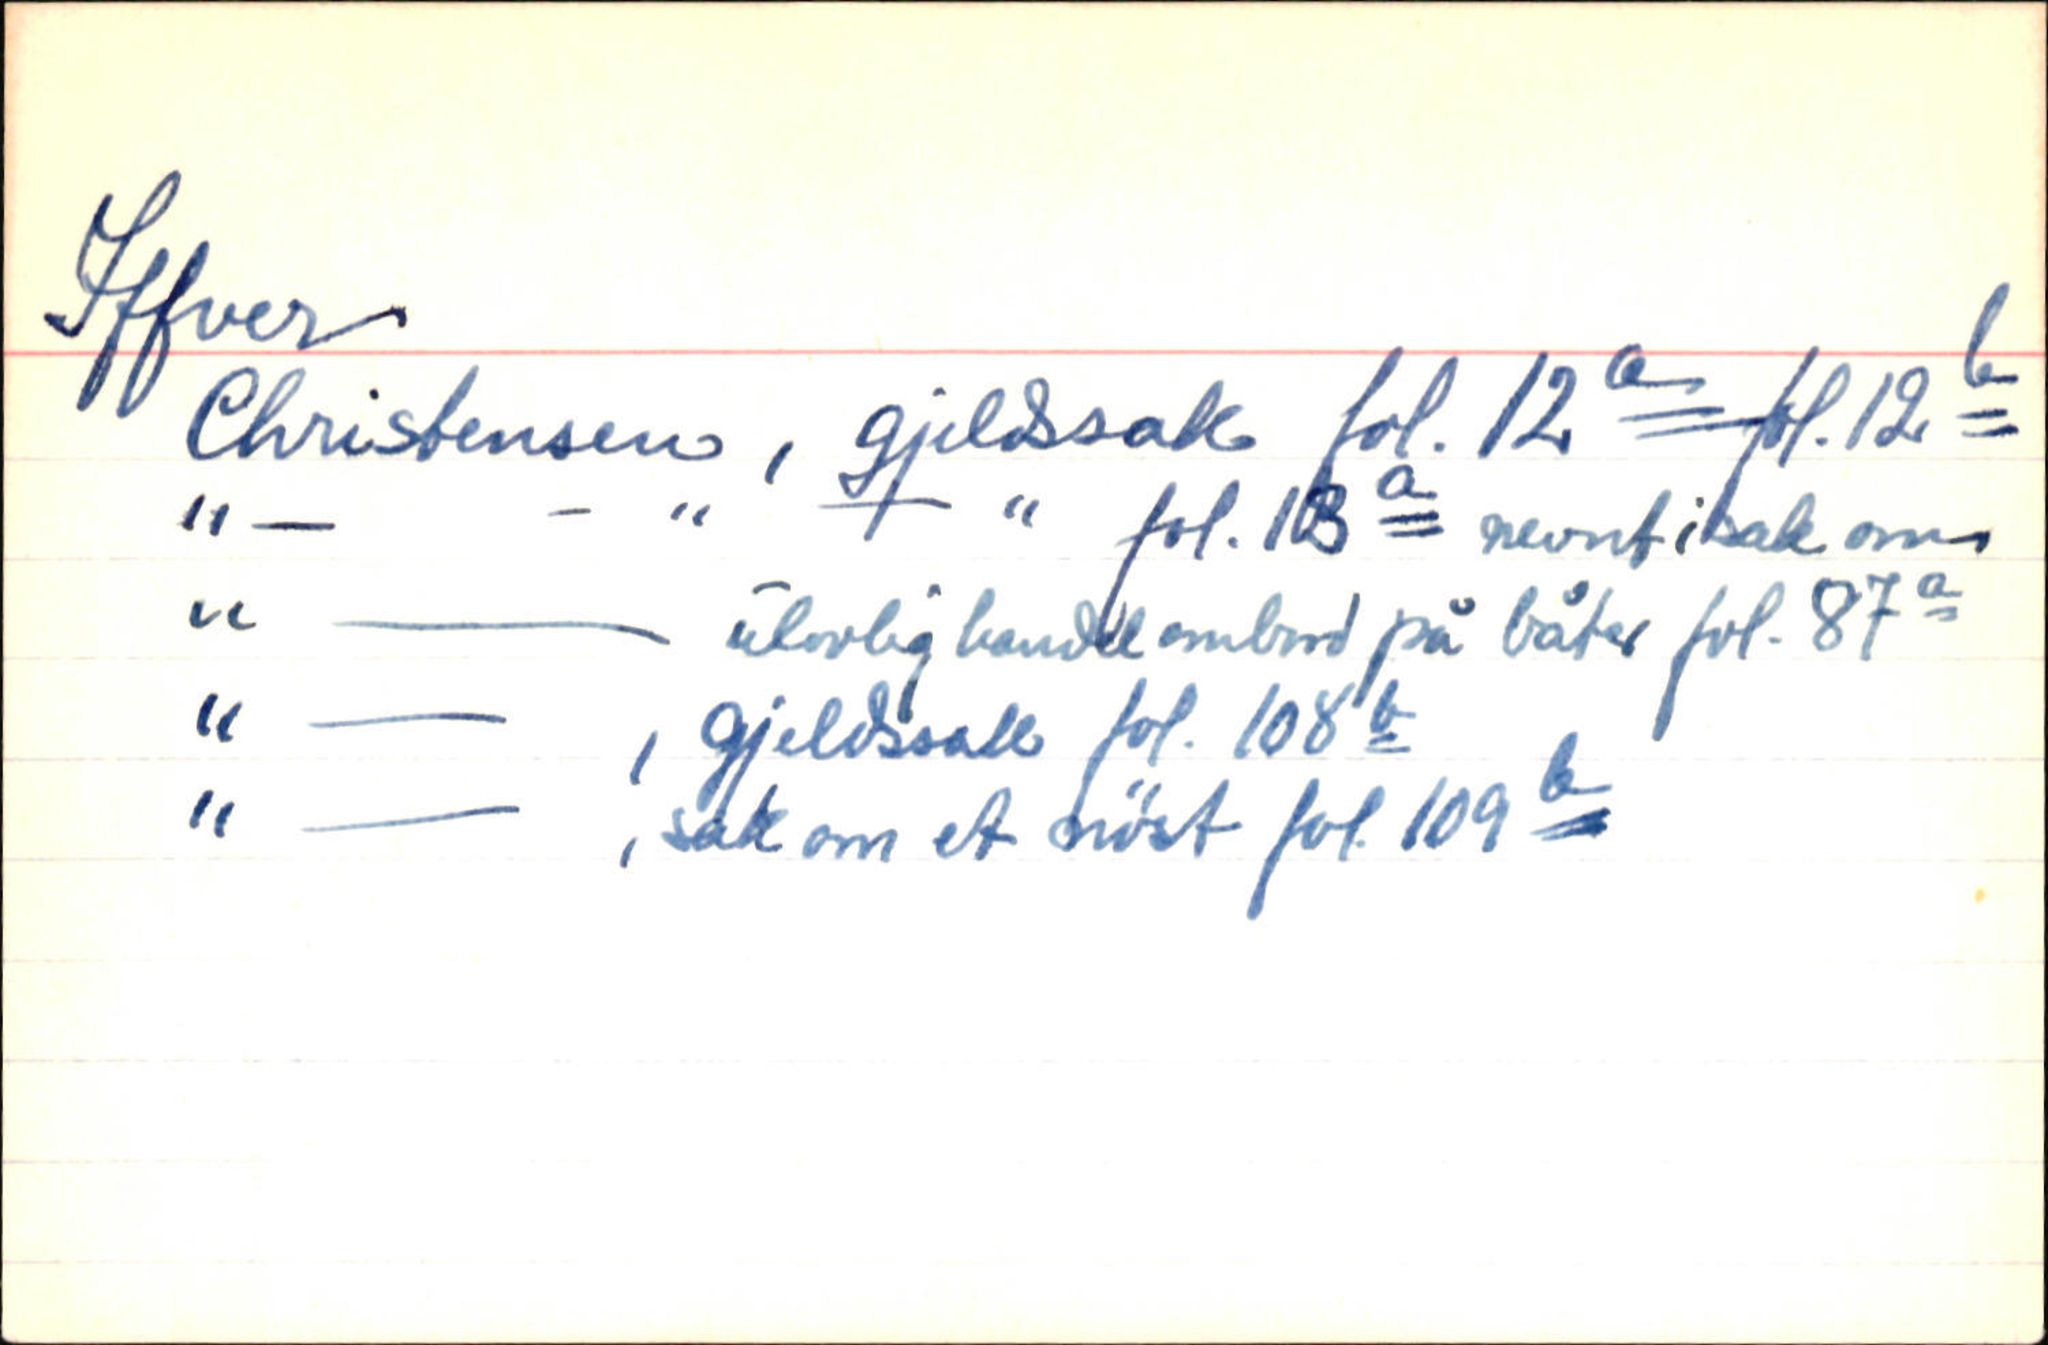 Iffver
Christensen, gjeldssak fol. 12a fol. 12b
"— - " — " fol. 13a nevnt i sak om
" — ulovlig handel ombord på båter fol. 87a
" — , gjeldssak fol. 108b
" — , sak om et nöst fol. 109b